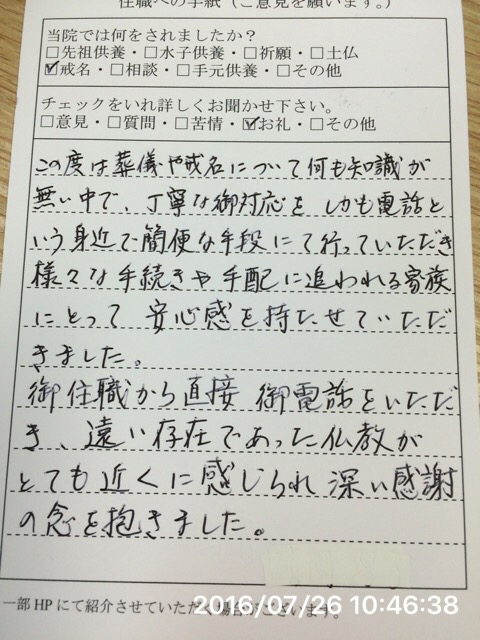 住職への手紙（ご意見を願います。）
当院では何をされましたか？
□先祖供養・□水子供養・□祈願・□土仏
☑戒名・□相談・□手元供養・□その他
チェックをいれ詳しくお聞かせ下さい。
□意見・□質問・□苦情・☑お礼・□その他
この度は葬儀や戒名について何も知識が
無い中で、丁寧な御対応を しかも電話と
いう身近で簡便な手段にて行っていただき
様々な手続きや手配に追われる家族
にとって 安心感を持たせていただ
きました。
御住職から直接 御電話をいただ
き、遠い存在であった仏教が
とても近くに感じられ 深い感謝
の念を抱きました。
一部HPにて紹介させていただく場合がございます。
2016/07/26 10:46:38